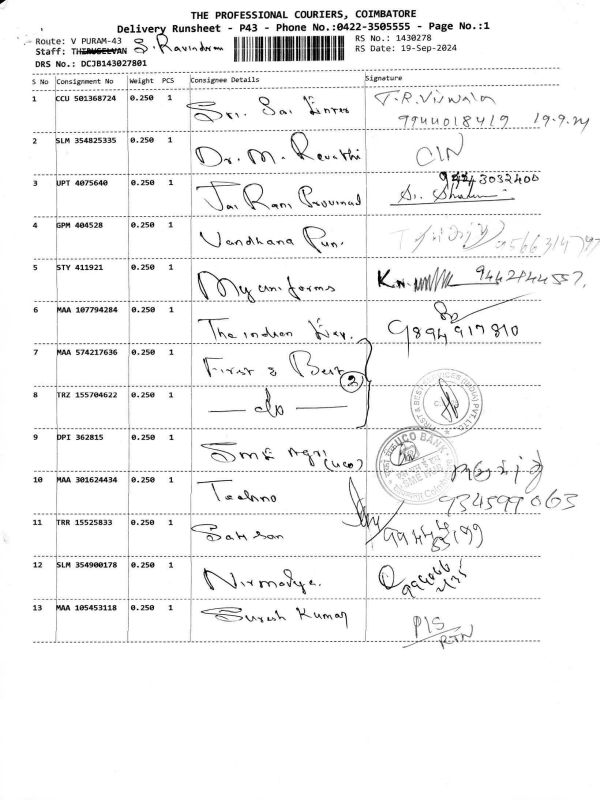 THE PROFESSIONAL COURIERS, COIMBATORE
Delivery Runsheet - P43 - Phone No.:0422-3505555 - Page No.:1
Route: V PURAM-43 RS No.: 1430278
Staff: THIRUSELVAN S. Ravindran RS Date: 19-Sep-2024
DRS No.: DCJB143027801
S No Consignment No Weight PCS Consignee Details Signature
1 CCU 501368724 0.250 1 Sri. Sai T.R.
9944018419 19.9.24
2 SLM 354825335 0.250 1 Dr. M. Revathi
3 UPT 4075640 0.250 1 Jai Rani Provinal 9443032400
4 GPM 404528 0.250 1 Vandhana Pun.
5 STY 411921 0.250 1 My uniforms K.N. 9442144557.
6 MAA 107794284 0.250 1 The indian
9894917810
7 MAA 574217636 0.250 1 First & Best
2
8 TRZ 155704622 0.250 1 — do —
FIRST & BEST SERVICES (INDIA) PVT. LTD.
9 DPI 362815 0.250 1 SME (UCO)
UCO BANK
10 MAA 301624434 0.250 1 Techno
11 TRR 15525833 0.250 1
12 SLM 354900178 0.250 1 Nirmalya.
13 MAA 105453118 0.250 1 Suresh Kumar
P/S
RTN